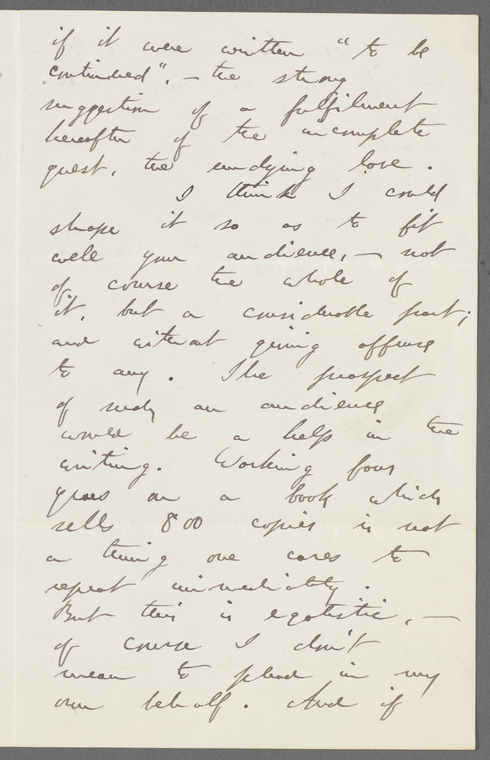 if it were written "to be
continued", – the strong
suggestion of a fulfilment
hereafter of the incomplete
quest, the undying love.
I think I could
shape it so as to fit
well your audience, – not
of course the whole of
it, but a considerable part;
and without giving offense
to any. The prospect
of such an audience
would be a help in the
writing. Working four
years on a book which
sells 800 copies is not
a thing one cares to
repeat immediately.
But this is egotistic, –
of course I don't
mean to plead in my
own behalf. And if